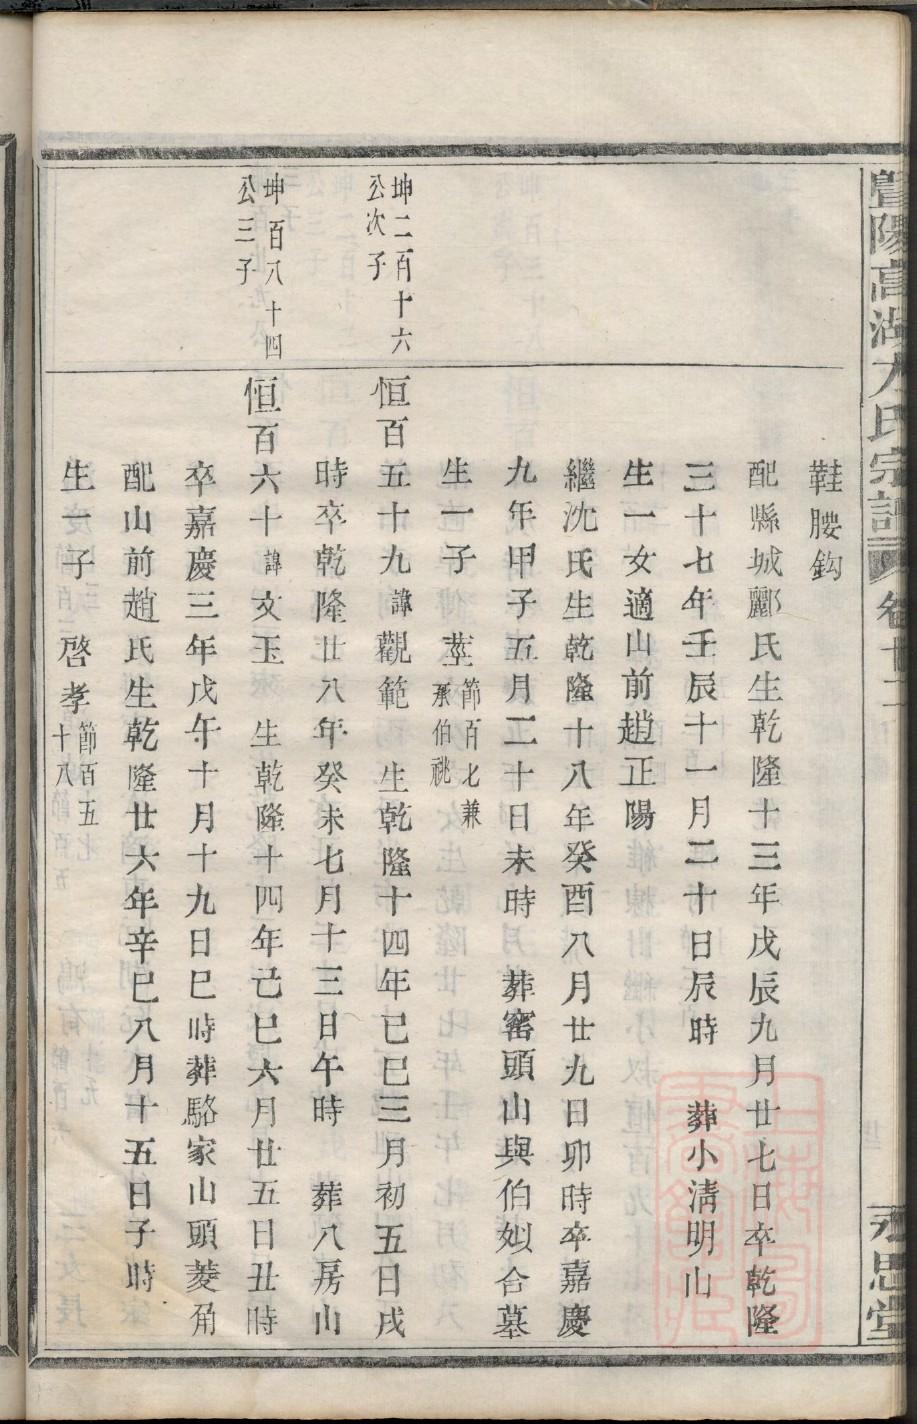 暨陽高湖方氏宗譜 卷廿二 永思堂
鞋腰鈎
配縣城酈氏生乾隆十三年戊辰九月廿七日卒乾隆
三十七年壬辰十一月二十日辰時 葬小淸明山
生一女適山前趙正陽
繼沈氏生乾隆十八年癸酉八月廿九日卯時卒嘉慶
九年甲子五月二十日未時 葬窰頭山與伯姒合墓
生一子 莖 節百七兼承伯祧
坤二百十六
公次子
恒百五十九 諱觀範 生乾隆十四年己巳三月初五日戌
時卒乾隆廿八年癸未七月十三日午時 葬八房山
坤百八十四
公三子
恒百六十 諱文玉 生乾隆十四年己巳六月廿五日丑時
卒嘉慶三年戊午十月十九日巳時葬駱家山頭菱角
配山前趙氏生乾隆廿六年辛巳八月十五日子時
生一子 啓孝 節百五十八